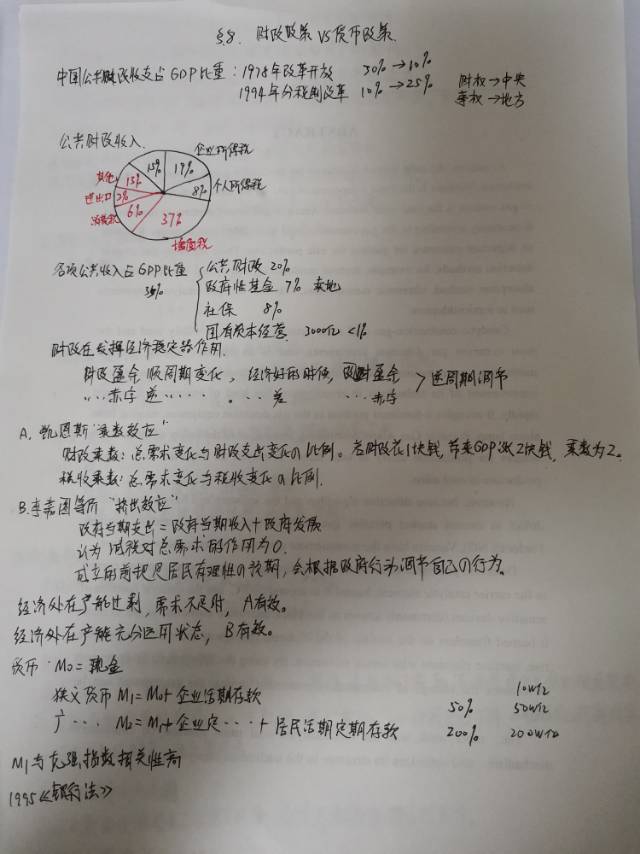 §8. 财政政策 VS 货币政策.
中国公共财政收支占GDP比重：1978年改革开放 30%→10%
1994年分税制改革 10%→25%
财权→中央
事权→地方
公共财政收入
企业所得税
15%
19%
其他
13%
8%
个人所得税
进出口
2%
消费税
6%
37%
增值税
各项公共收入占GDP比重
公共财政 20%
36%
政府性基金 7% 卖地
社保 8%
国有资本经营 3000亿 <1%
财政在发挥经济稳定器作用.
财政盈余 顺周期变化，经济好的时候，财盈余 > 逆周期调节
〃…赤字 逆…… 。…差 …赤字
A. 凯恩斯"乘数效应"
财政乘数：总需求变化与财政支出变化の比例。若财政花1块钱，带来GDP涨2块钱，乘数为2。
税收乘数：总需求变化与税收变化の比例.
B. 李嘉图等价 "挤出效应"
政府当期支出=政府当期收入+政府发展
认为 减税对总需求的作用为0.
成立的前提是居民有理性の预期，会根据政府行为调节自己の行为。
经济处在产能过剩，需求不足时，A有效。
经济处在产能充分运用状态，B有效。
货币 M0= 现金
10W亿
狭义货币 M1=M0+企业活期存款 50% 50W亿
广…… M2=M1+企业定……+居民活期定期存款 200% 200W亿
M1与克强指数相关性高
1995《银行法》